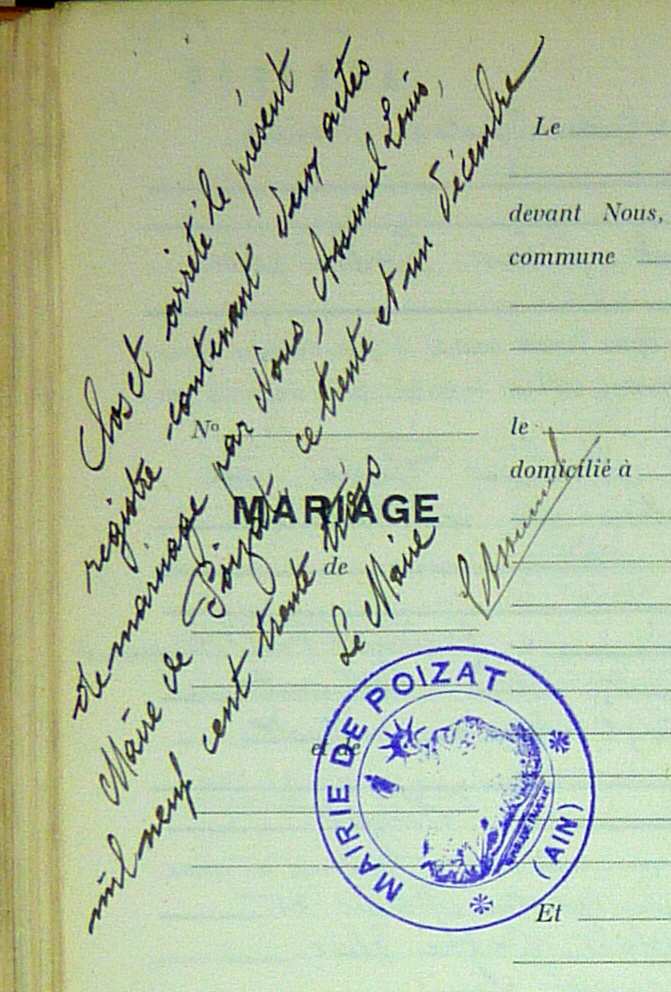 Clos et arrêté le présent
registre contenant deux actes
de mariage par Nous, Assumel Louis,
Maire de Poizat ce trente et un décembre
mil neuf cent trente trois
Le Maire
LAssumel
Nº
MARIAGE
de
et de
Le
devant Nous,
commune
le
domicilié à
Et
MAIRIE DE POIZAT
(AIN)